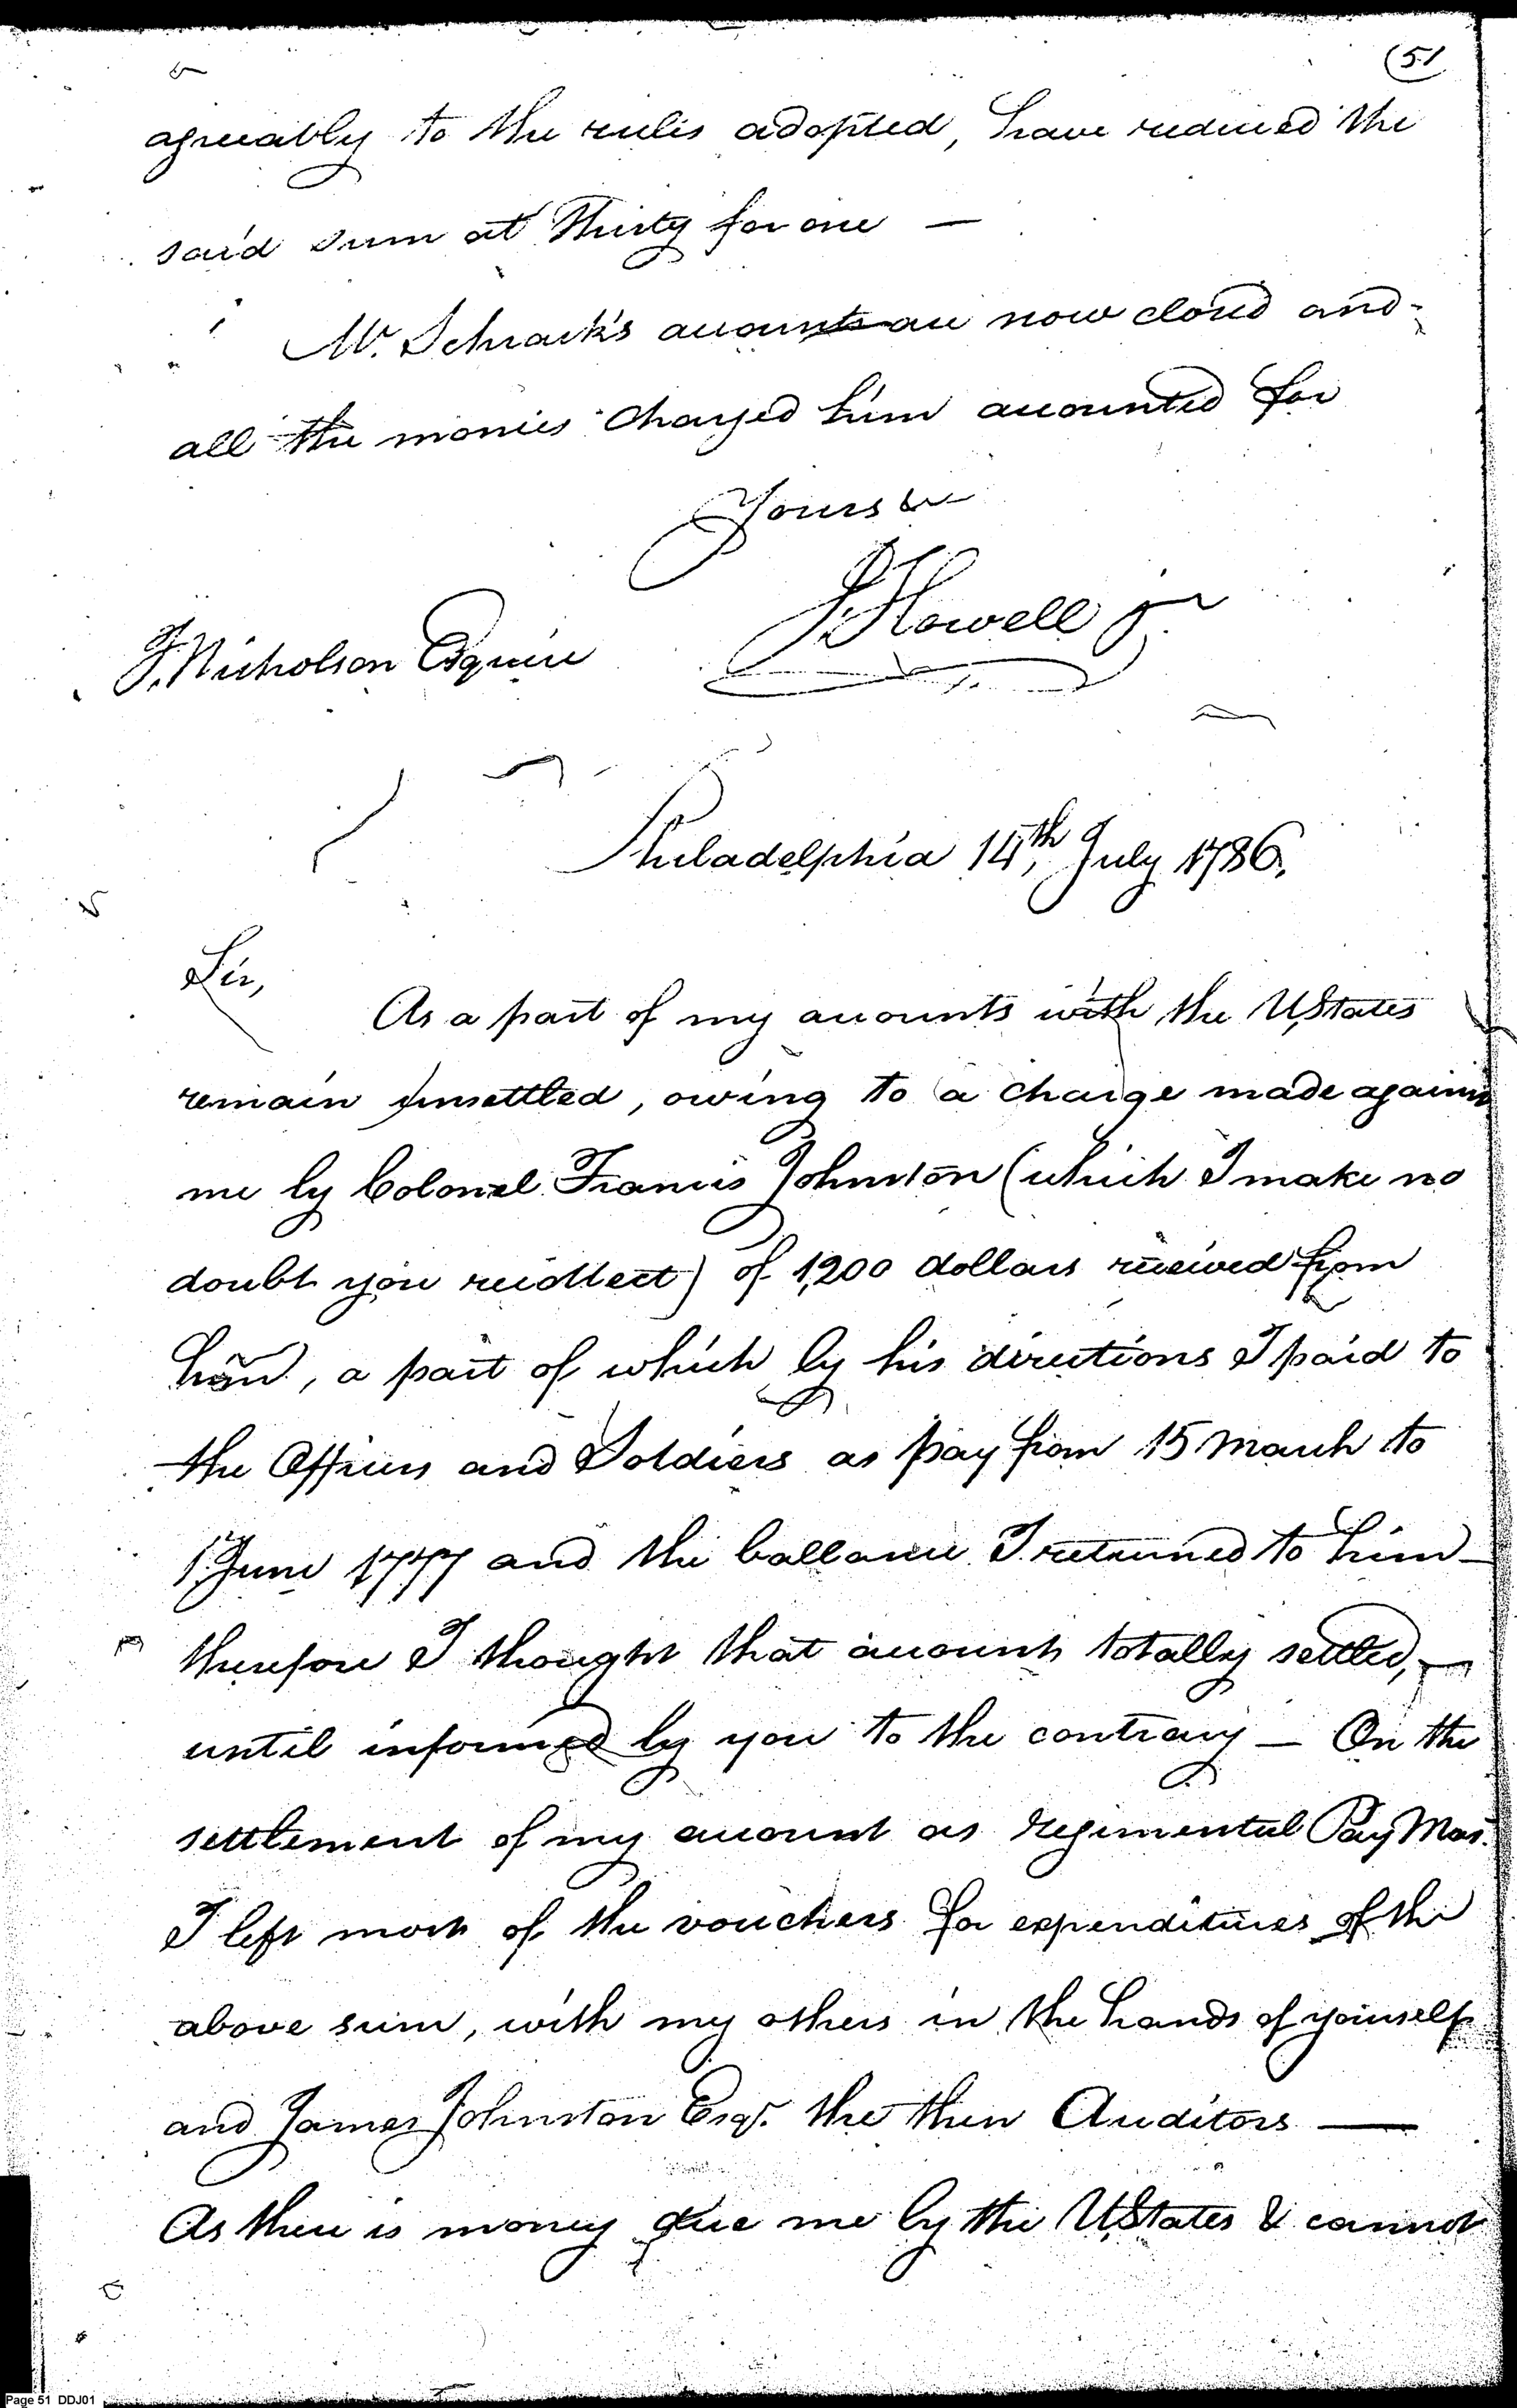 (51
agreeably to the rules adopted, have reduced the
said sum at Thirty for one —
Mr. Schrack's accounts are now closed and
all the monies charged him accounted for
Yours &c
J. Howell jr
J. Nicholson Esquire
Philadelphia 14th, July 1786.
Sir,
As a part of my accounts with the UStates
remain unsettled, owing to a charge made against
me by Colonel Francis Johnston (which I make no
doubt you recollect) of 1,200 dollars received from
him, a part of which by his directions I paid to
the Officers and Soldiers as pay from 15 March to
1 June 1777 and the ballance I returned to him
therefore I thought that account totally settled,
until informed by you to the contrary — On the
settlement of my account as regimental Pay Mas.
I left most of the vouchers for expenditures of the
above sum, with my others in the hands of yourself
and James Johnston Esqr. the then Auditors —
As there is money due me by the UStates & cannot
Page 51 DDJ01